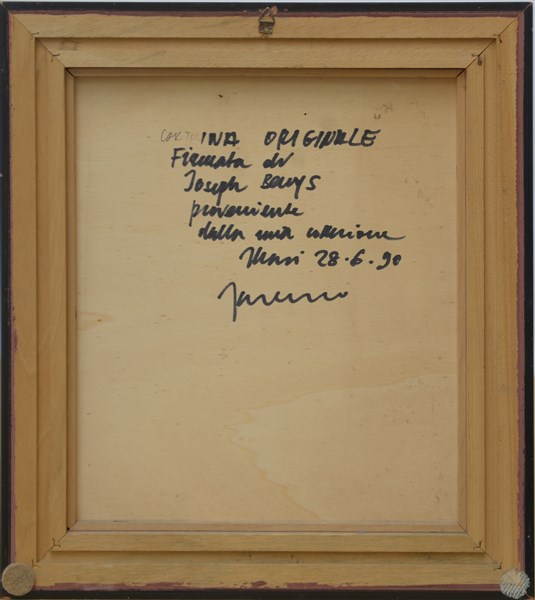 CARTOINA ORIGINALE
Firmata di
Joseph Beuys
proveniente
dalla mia collezione
28-6-90